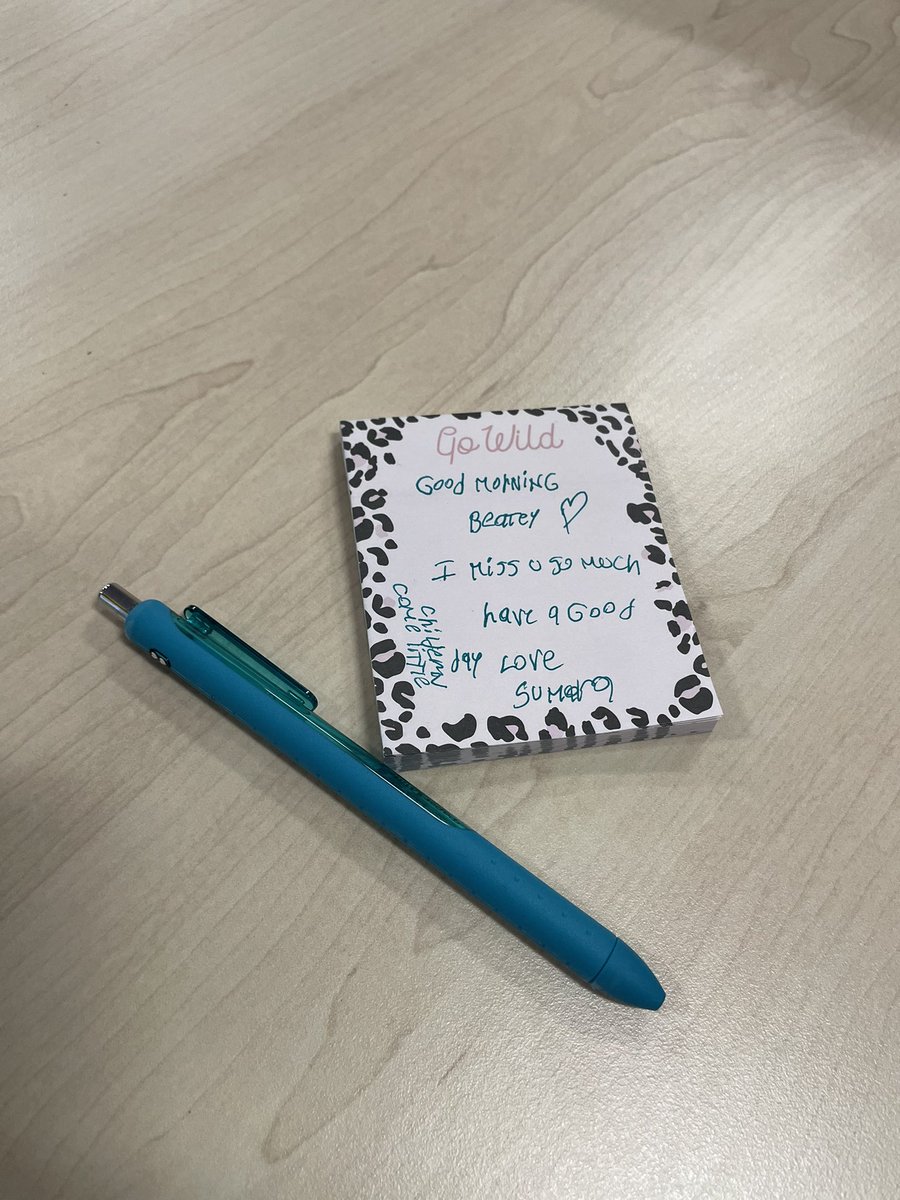 Go Wild
Good MorNING
Beatey ♡
I Miss u so Much
have a Good
day Love
Sumara
come little
childern